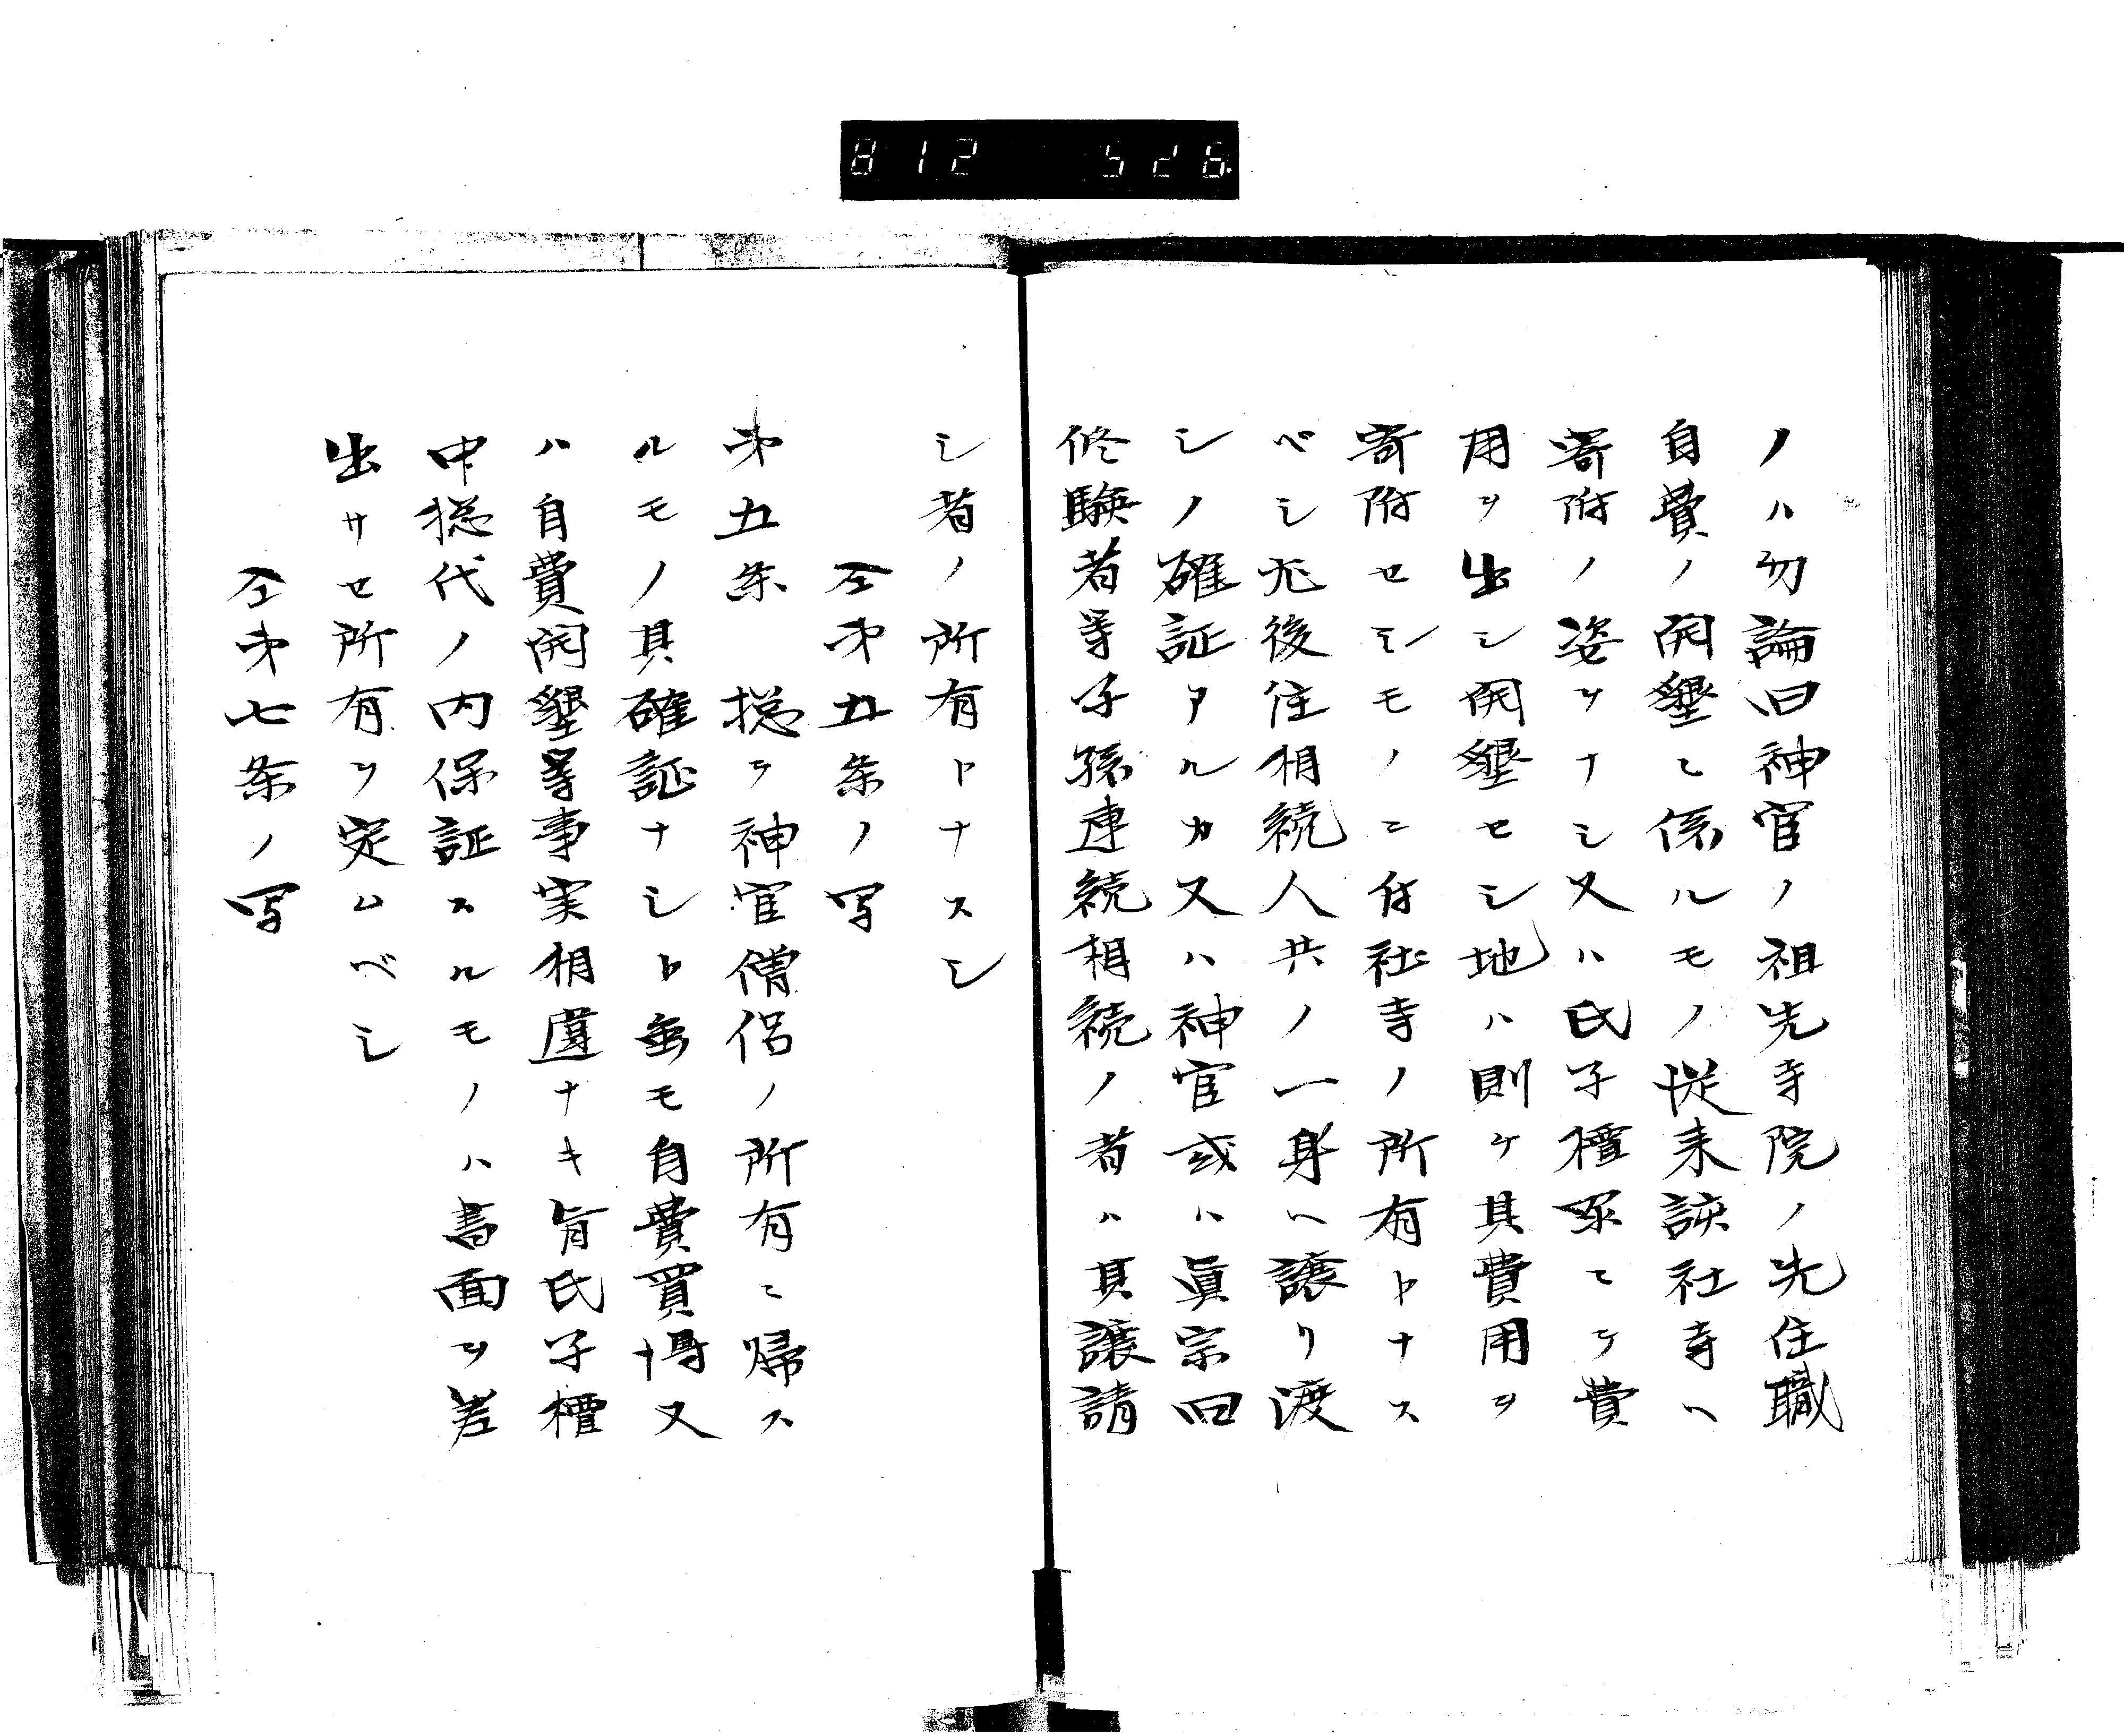 812 526
ノハ勿論旧神官ノ祖先寺院ノ先住職
自費ノ開墾ニ係ルモノ従来該社寺ヘ
寄附ノ姿ヲナシ又ハ氏子檀家ニテ費
用ヲ出シ開墾セシ地ハ則ケ其費用ヲ
寄附セシモノニ付社寺ノ所有トナス
ベシ尤後住相続人共ノ一身ヘ譲リ渡
シノ確証アルカ又ハ神官或ハ眞宗旧
修験者等子孫連続相続ノ者ハ其譲請
シ者ノ所有トナスシ
仝第五条ノ写
第五条 摠テ神官僧侶ノ所有ニ帰ス
ルモノ其確証ナシト虽モ自費買得又
ハ自費開墾等事実相違ナキ旨氏子檀
中摠代ノ内保証スルモノハ書面ヲ差
出サセ所有ヲ定ムベシ
仝第七条ノ写